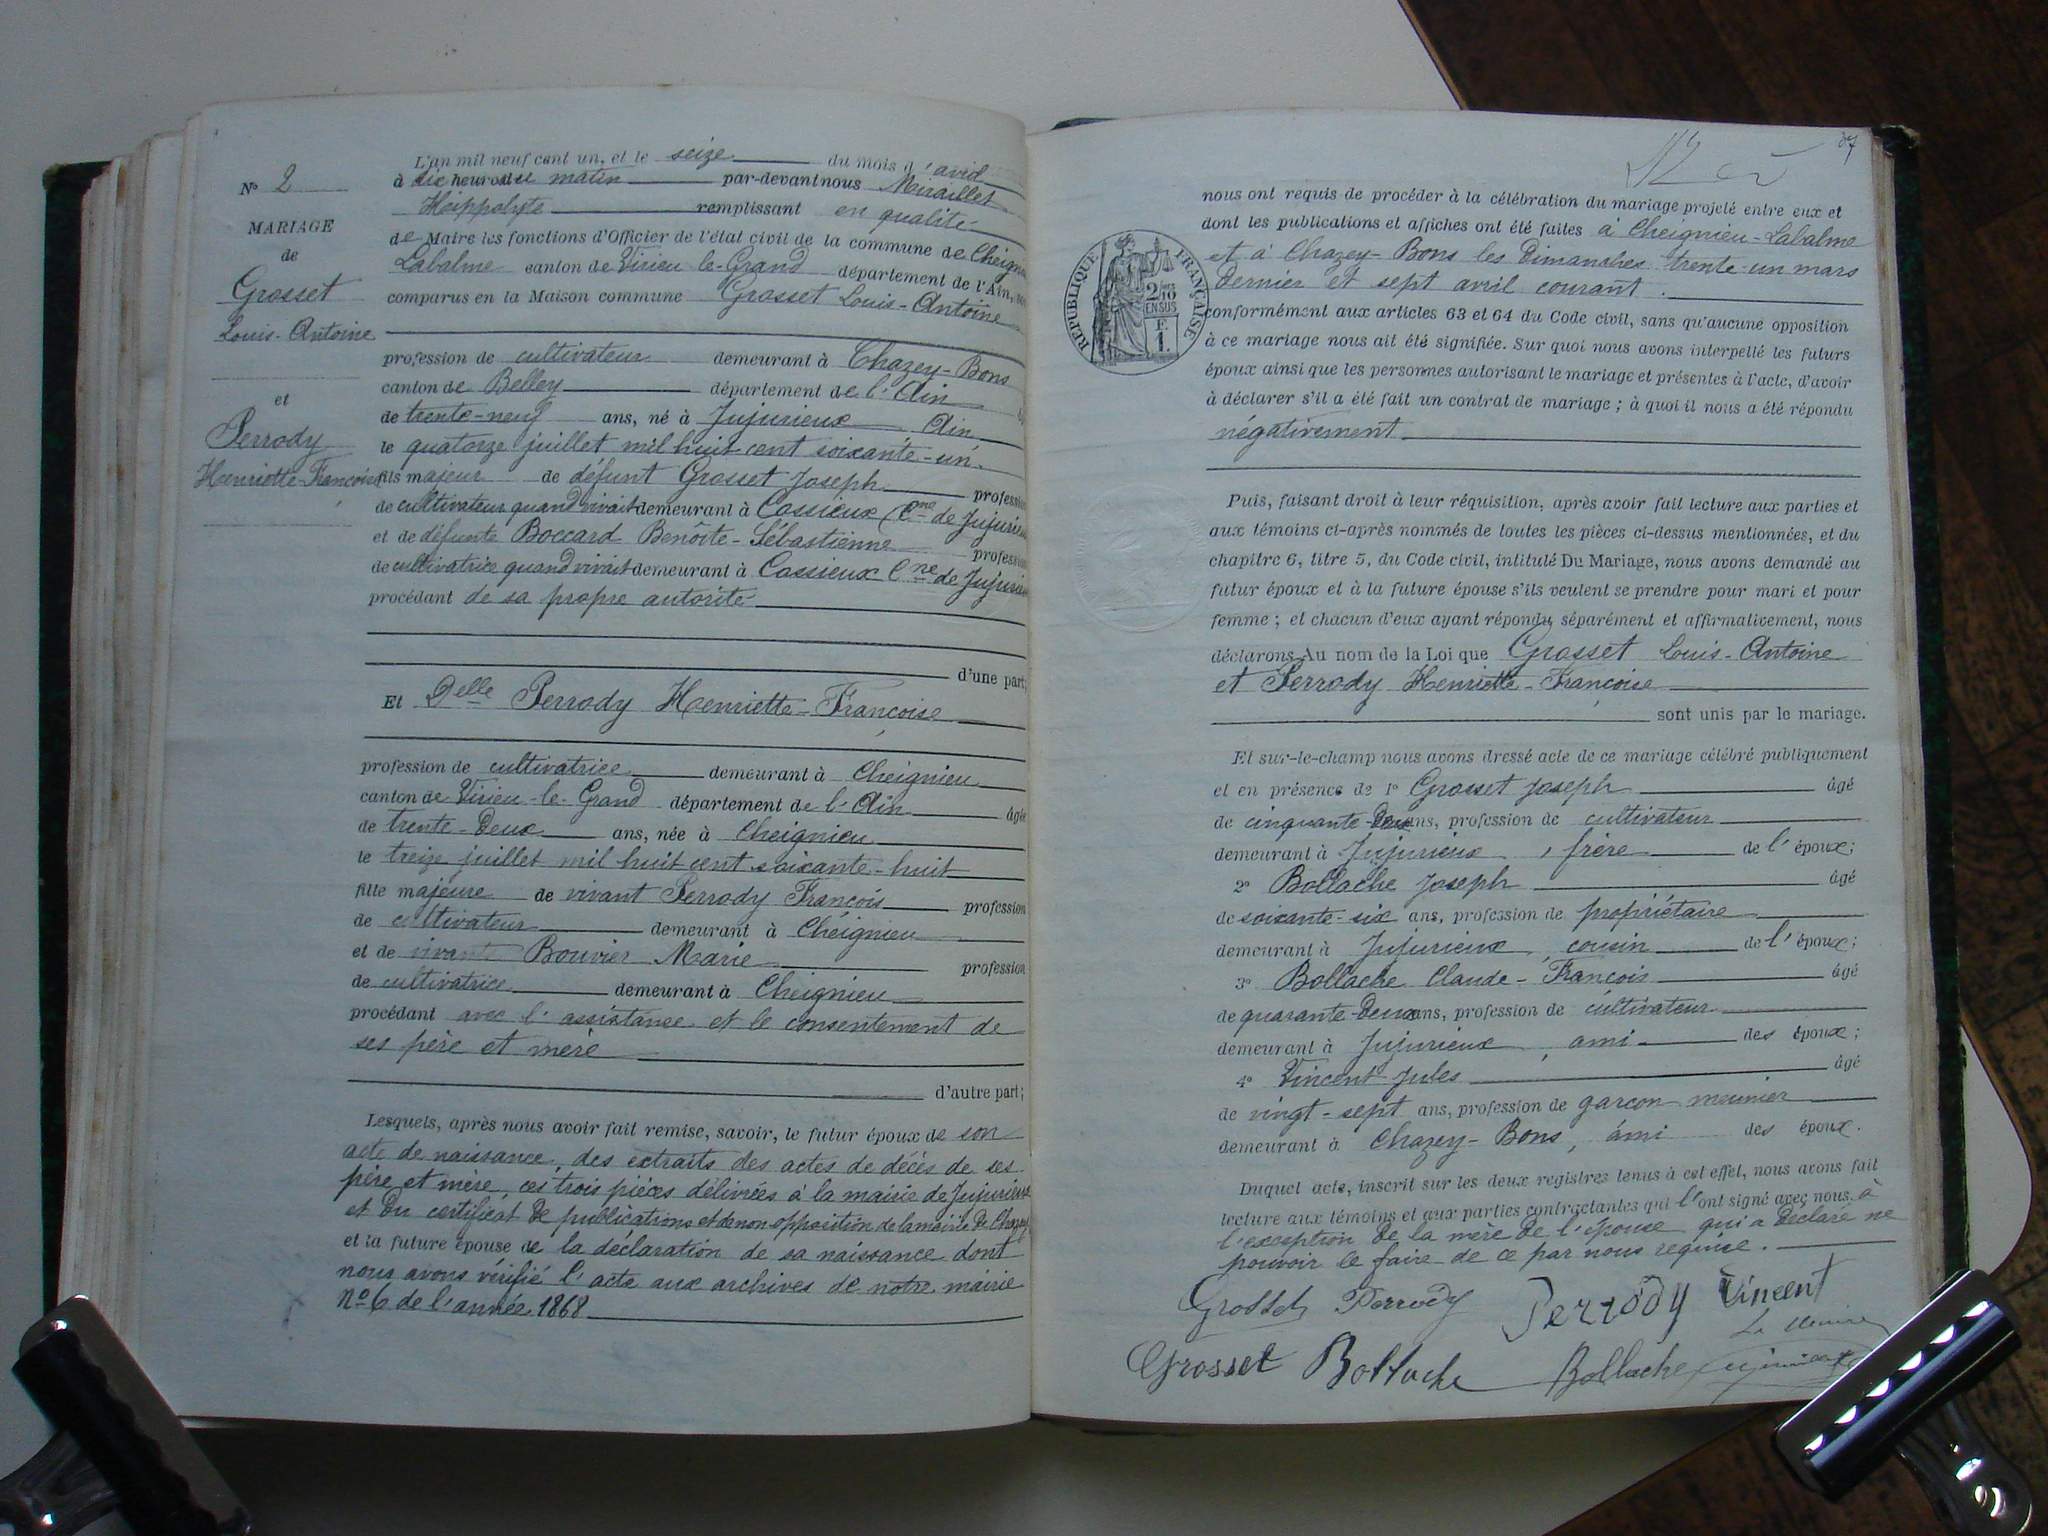 N° 2
MARIAGE
de
Grosset
Louis-Antoine
et
Perrody
Henriette-Françoise
L'an mil neuf cent un, et le seize du mois d'avril
à dix heures du matin par-devant nous Miraillet
Hippolyte remplissant en qualité
de Maire les fonctions d'Officier de l'état civil de la commune de Cheignieu
Labalme canton de Virieu-le-Grand département de l'Ain,
comparus en la Maison commune Grosset Louis-Antoine
profession de cultivateur demeurant à Chazey-Bons
canton de Belley département de l'Ain
de trente-neuf ans, né à Jujurieux Ain
le quatorze juillet mil huit cent soixante-un
fils majeur de défunt Grosset Joseph profession
de cultivateur quand vivait demeurant à Cossieux Cne de Jujurieux
et de défunte Boccard Benôite-Sébastienne profession
de cultivatrice quand vivait demeurant à Cossieux Cne de Jujurieux
procédant de sa propre autorité
d'une part;
Et Delle Perrody Henriette-Françoise
profession de cultivatrice demeurant à Cheignieu
canton de Virieu-le-Grand département de l'Ain âgée
de trente-deux ans, née à Cheignieu
le treize juillet mil huit cent soixante-huit
fille majeure de vivant Perrody François profession
de cultivateur demeurant à Cheignieu
et de vivante Bouvier Marie profession
de cultivatrice demeurant à Cheignieu
procédant avec l'assistance et le consentement de
ses père et mère
d'autre part;
Lesquels, après nous avoir fait remise, savoir, le futur époux de son
acte de naissance, des extraits des actes de décès de ses
père et mère, ces trois pièces délivrées à la mairie de Jujurieux
et du certificat de publications et de non opposition de la mairie de Chazey
et la future épouse de la déclaration de sa naissance dont
nous avons vérifié l'acte aux archives de notre mairie
N° 6 de l'année 1868
87
nous ont requis de procéder à la célébration du mariage projeté entre eux et
dont les publications et affiches ont été faites à Cheignieu-Labalme
et à Chazey-Bons les Dimanches trente-un mars
dernier et sept avril courant.
RÉPUBLIQUE FRANÇAISE
2/10 EN SUS
F. 1.
conformément aux articles 63 et 64 du Code civil, sans qu'aucune opposition
à ce mariage nous ait été signifiée. Sur quoi nous avons interpellé les futurs
époux ainsi que les personnes autorisant le mariage et présentes à l'acte, d'avoir
à déclarer s'il a été fait un contrat de mariage; à quoi il nous a été répondu
négativement.
Puis, faisant droit à leur réquisition, après avoir fait lecture aux parties et
aux témoins ci-après nommés de toutes les pièces ci-dessus mentionnées, et du
chapitre 6, titre 5, du Code civil, intitulé Du Mariage, nous avons demandé au
futur époux et à la future épouse s'ils veulent se prendre pour mari et pour
femme; et chacun d'eux ayant répondu séparément et affirmativement, nous
déclarons Au nom de la Loi que Grosset Louis-Antoine
et Perrody Henriette-Françoise
sont unis par le mariage.
Et sur-le-champ nous avons dressé acte de ce mariage célébré publiquement
et en présence de 1° Grosset Joseph âgé
de cinquante-deux ans, profession de cultivateur
demeurant à Jujurieux, frère de l'époux;
2° Bollache Joseph âgé
de soixante-six ans, profession de propriétaire
demeurant à Jujurieux, cousin de l'époux;
3° Bollache Claude-François âgé
de quarante-deux ans, profession de cultivateur
demeurant à Jujurieux, ami des époux;
4° Vincent Jules âgé
de vingt-sept ans, profession de garçon meunier
demeurant à Chazey-Bons, ami des époux.
Duquel acte, inscrit sur les deux registres tenus à cet effet, nous avons fait
lecture aux témoins et aux parties contractantes qui l'ont signé avec nous, à
l'exception de la mère de l'épouse qui a déclaré ne
pouvoir le faire de ce par nous requise.
Grosset Perrody Perrody Vincent
Le Maire
Grosset Bollache Bollache